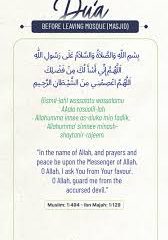 Du'a
BEFORE LEAVING MOSQUE (MASJID)
بِسْمِ اللَّهِ وَالصَّلَاةُ وَالسَّلَامُ عَلَى رَسُولِ اللَّهِ
اللَّهُمَّ إِنِّي أَسْأَلُكَ مِنْ فَضْلِكَ
اللَّهُمَّ اعْصِمْنِي مِنَ الشَّيْطَانِ الرَّجِيمِ
Bismil-lahi wassalatu wassalamu
Alaa rasoolil-lah
Allahumma innee as-aluka min fadlik,
Allahumma' simnee minash-
shaytanir-rajeem
"In the name of Allah, and prayers and
peace be upon the Messenger of Allah.
O Allah, I ask You from Your favour.
O Allah, guard me from the
accursed devil."
Muslim: 1:494 - Ibn Majah: 1:129